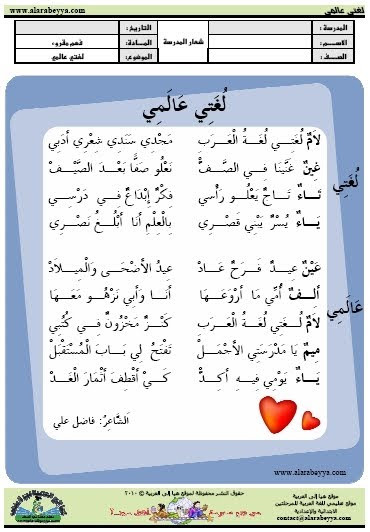 لغتي عالمي
www.alarabeyya.com
المدرسة :
شعار المدرسة
التاريخ :
الاسم :
المادة : فهم مقروء
الصف :
الموضوع : لغتي عالمي
لُغَتِي عَالَمِي
لُغَتِي
لاَمٌ لُغَتِي لُغَةُ الْعَرَبِ مَجْدِي سَنَدِي شِعْرِي أَدَبِي
غَينٌ غَنَّيْنَا فِي الصَّفِّ نَعْلُو صَفًّا بَعْدَ الصَّيْفِ
تَاءٌ تَاجٌ يَعْلُو رَأْسِي فِكْرٌ إِبْدَاعٌ فِي دَرْسِي
يَاءٌ يُسْرٌ يَبْنِي قَصْرِي بِالْعِلْمِ أَنَا أَبْلُغُ نَصْرِي
عَالَمِي
عَيْنٌ عِيدٌ فَرَحٌ عَادْ عِيدُ الأَضْحَى وَالْمِيلاَدْ
أَلِفٌ أُمِّي مَا أَرْوَعَهَا وَأَنَا وَأَبِي نَزْهُو مَعَهَا
لاَمٌ لُغَتِي لُغَةُ الْعَرَبِ كَنْزٌ مَخْزُونٌ فِي كُتُبِي
مِيمٌ يَا مَدْرَسَتِي الأَجْمَلْ نَفْتَحُ لِي بَابَ الْمُسْتَقْبَلْ
يَاءٌ يَوْمِي فِيهِ أَكِدُّ كَيْ أَقْطِفَ أَثْمَارَ الْغَدْ
اَلشَّاعِرُ: فاضل علي
www.alarabeyya.com
حقوق النشر محفوظة لموقع هيا إلى العربية © ٢٠١٠
موقع هيا إلى العربية
موقع تعليمي للغة العربية للمرحلتين
الابتدائية والإعدادية
contact@alarabeyya.com
www.alarabeyya.com